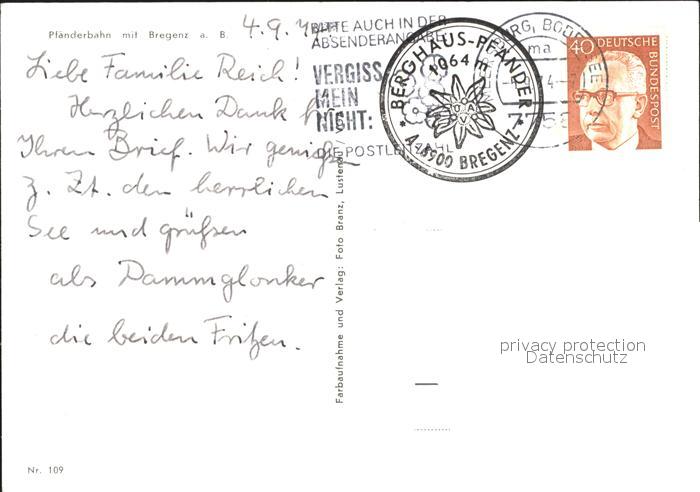 Pfänderbahn mit Bregenz a. B.
4.9.
Liebe Familie Reich!
Herzlichen Dank für
Ihren Brief. Wir genießen
z. Zt. den herrlichen
See und grüßen
als Dammglonker
die beiden Fritzen.
Nr. 109
Farbaufnahme und Verlag: Foto Branz, Lustenau
BITTE AUCH IN DER
ABSENDERANGABE
VERGISS
MEIN
NICHT:
DIE POSTLEITZAHL
BERGHAUS-PFÄNDER
1064
A-6900 BREGENZ
BODENSEE
775
40 DEUTSCHE
BUNDESPOST
privacy protection
Datenschutz